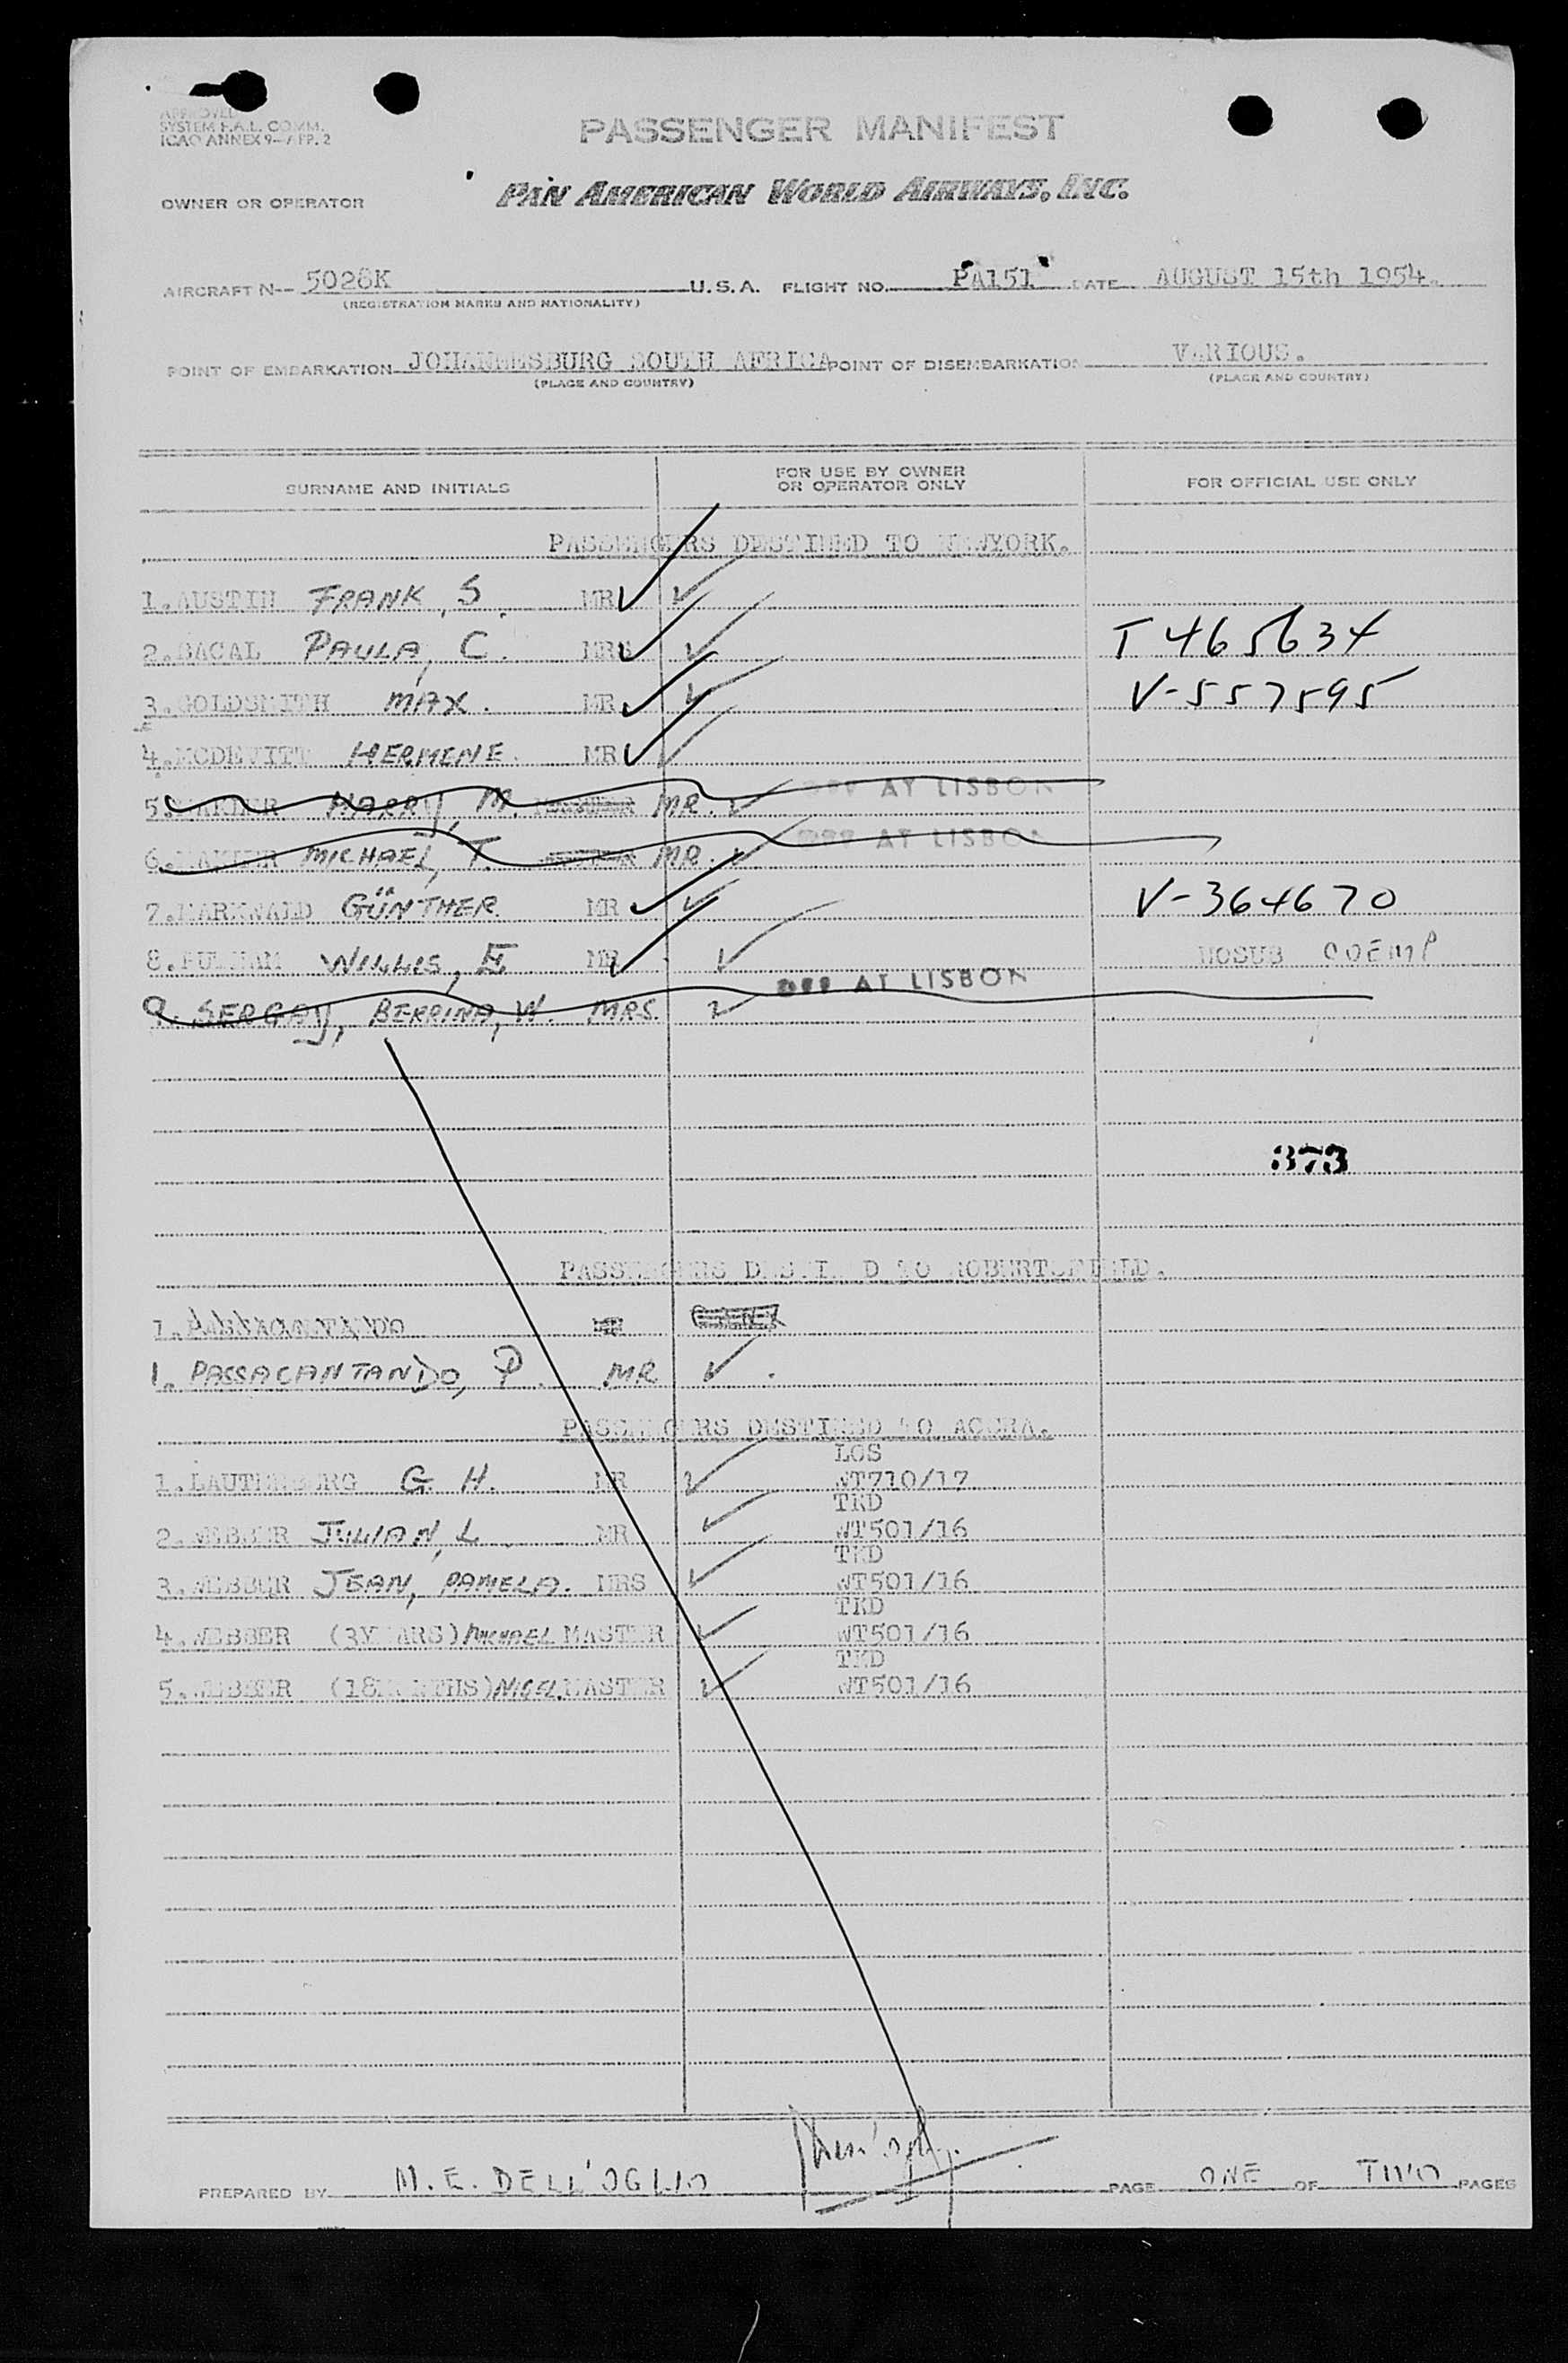 APPROVED
SYSTEM F.A.L. COMM.
ICAO ANNEX 9-APP. 2
PASSENGER MANIFEST
OWNER OR OPERATOR PAN AMERICAN WORLD AIRWAYS, INC.
AIRCRAFT N-- 5026K U.S.A. FLIGHT NO. PA151 DATE AUGUST 15th 1954.
(REGISTRATION MARKS AND NATIONALITY)
POINT OF EMBARKATION JOHANNESBURG SOUTH AFRICA POINT OF DISEMBARKATION VARIOUS.
(PLACE AND COUNTRY) (PLACE AND COUNTRY)
SURNAME AND INITIALS FOR USE BY OWNER OR OPERATOR ONLY FOR OFFICIAL USE ONLY
PASSENGERS DESTINED TO NEWYORK.
1. AUSTIN FRANK, S. MR
2. BACAL PAULA, C. MRS T 465634
3. GOLDSMITH MAX. MR V-557595
4. MCDEVITT HERMENE. MR
5. HARRY, M. MR. OFF AT LISBON
6. MICHAEL, T. MR. OFF AT LISBON
7. MARKWALD GÜNTHER MR V-364670
8. PUTNAM WILLIS, E MR NOSUB COEMP
9. SERGAY, BERRINA, W. MRS. OFF AT LISBON
373
PASSENGERS DESTINED TO ROBERTSFIELD.
1. PASSACANTANDO
1. PASSACANTANDO, P. MR
PASSENGERS DESTINED TO ACCRA.
LOS
1. LAUTENBERG G. H. MR WT710/17
TKD
2. WEBBER JULIAN, L. MR WT501/16
TKD
3. WEBBER JEAN, PAMELA. MRS WT501/16
TKD
4. WEBBER (3YEARS) MICHAEL MASTER WT501/16
TKD
5. WEBBER (18MONTHS) NIGEL MASTER WT501/16
PREPARED BY M. E. DELL'OGLIO PAGE ONE OF TWO PAGES